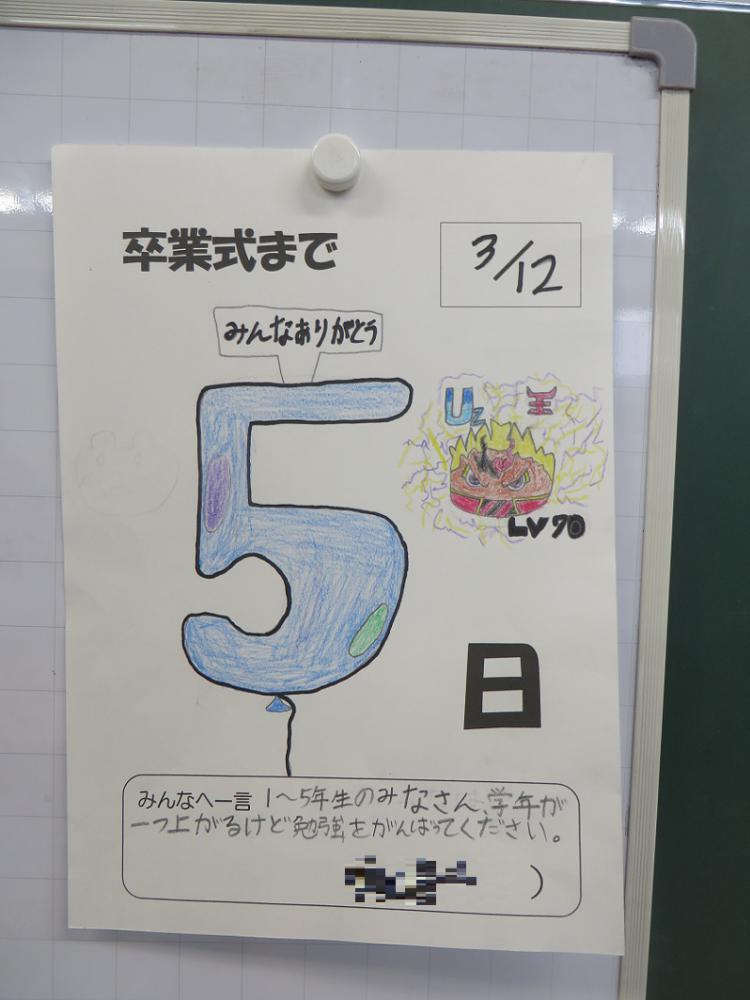 卒業式まで
3/12
みんなありがとう
Uz 王
LV70
5
日
みんなへ一言 1〜5年生のみなさん、学年が
一つ上がるけど勉強をがんばってください。
)